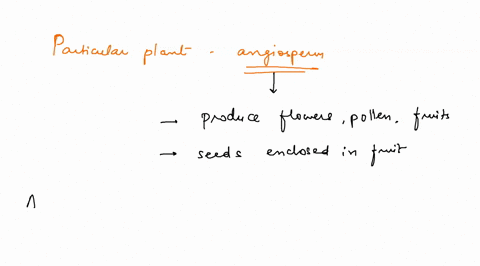 Particular plant - angiosperm
→ produce flowers, pollen, fruits
→ seeds enclosed in fruit